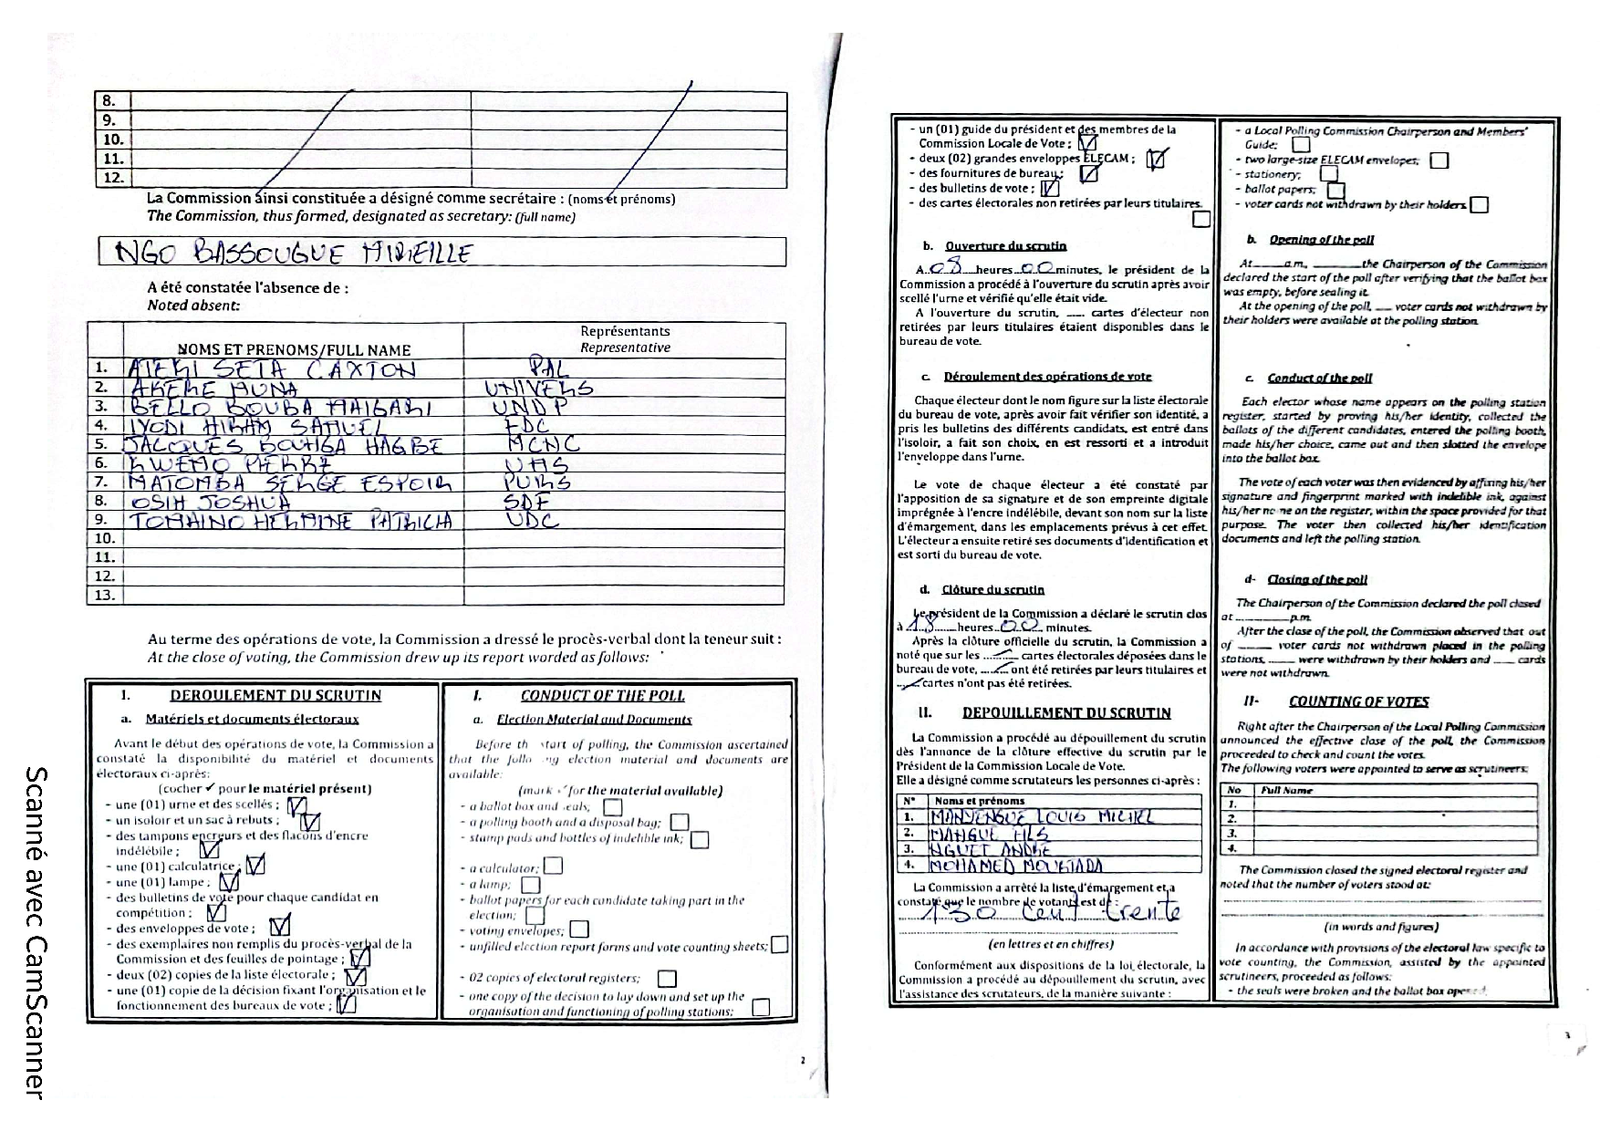 8.
9.
10.
11.
12.
La Commission ainsi constituée a désigné comme secrétaire : (noms et prénoms)
The Commission, thus formed, designated as secretary: (full name)
NGO BASSOUGUE MIREILLE
A été constatée l'absence de :
Noted absent:
NOMS ET PRENOMS/FULL NAME
Représentants
Representative
1. ATEKI SETA CAXTON PAL
2. AKERE MUNA UNIVERS
3. BELLO BOUBA MAIGARI UNDP
4. IYODI HIRAM SAMUEL FDC
5. JACQUES BOUHGA HAGBE MCNC
6. KWEMO PIERRE UMS
7. MATOMBA SERGE ESPOIR PURS
8. OSIH JOSHUA SDF
9. TOMAINO HERMINE PATRICIA UDC
10.
11.
12.
13.
Au terme des opérations de vote, la Commission a dressé le procès-verbal dont la teneur suit :
At the close of voting, the Commission drew up its report worded as follows:
I. DEROULEMENT DU SCRUTIN
a. Matériels et documents électoraux
Avant le début des opérations de vote, la Commission a
constaté la disponibilité du matériel et documents
électoraux ci-après:
(cocher ✓ pour le matériel présent)
- une (01) urne et des scellés ;
- un isoloir et un sac à rebuts ;
- des tampons encreurs et des flacons d'encre
indélébile ;
- une (01) calculatrice ;
- une (01) lampe ;
- des bulletins de vote pour chaque candidat en
compétition ;
- des enveloppes de vote ;
- des exemplaires non remplis du procès-verbal de la
Commission et des feuilles de pointage ;
- deux (02) copies de la liste électorale ;
- une (01) copie de la décision fixant l'organisation et le
fonctionnement des bureaux de vote ;
I. CONDUCT OF THE POLL
a. Election Material and Documents
Before th start of polling, the Commission ascertained
that the follo ng election material and documents are
available:
(mark for the material available)
- a ballot box and seals;
- a polling booth and a disposal bag;
- stamp pads and bottles of indelible ink;
- a calculator;
- a lamp;
- ballot papers for each candidate taking part in the
election;
- voting envelopes;
- unfilled election report forms and vote counting sheets;
- 02 copies of electoral registers;
- one copy of the decision to lay down and set up the
organisation and functioning of polling stations;
2
- un (01) guide du président et des membres de la
Commission Locale de Vote ;
- deux (02) grandes enveloppes ELECAM ;
- des fournitures de bureau ;
- des bulletins de vote ;
- des cartes électorales non retirées par leurs titulaires.
b. Ouverture du scrutin
A 08 heures 00 minutes, le président de la
Commission a procédé à l'ouverture du scrutin après avoir
scellé l'urne et vérifié qu'elle était vide.
A l'ouverture du scrutin, .... cartes d'électeur non
retirées par leurs titulaires étaient disponibles dans le
bureau de vote.
c. Déroulement des opérations de vote
Chaque électeur dont le nom figure sur la liste électorale
du bureau de vote, après avoir fait vérifier son identité, a
pris les bulletins des différents candidats, est entré dans
l'isoloir, a fait son choix, en est ressorti et a introduit
l'enveloppe dans l'urne.
Le vote de chaque électeur a été constaté par
l'apposition de sa signature et de son empreinte digitale
imprégnée à l'encre indélébile, devant son nom sur la liste
d'émargement, dans les emplacements prévus à cet effet.
L'électeur a ensuite retiré ses documents d'identification et
est sorti du bureau de vote.
d. Clôture du scrutin
Le président de la Commission a déclaré le scrutin clos
à 18 heures 00 minutes.
Après la clôture officielle du scrutin, la Commission a
noté que sur les ........ cartes électorales déposées dans le
bureau de vote, ...... ont été retirées par leurs titulaires et
...... cartes n'ont pas été retirées.
II. DEPOUILLEMENT DU SCRUTIN
La Commission a procédé au dépouillement du scrutin
dès l'annonce de la clôture effective du scrutin par le
Président de la Commission Locale de Vote.
Elle a désigné comme scrutateurs les personnes ci-après :
N° Noms et prénoms
1. MANYENGUE LOUIS MICHEL
2. MANGUE FILS
3. NGUET ANDRE
4. MOHAMED MOUKTADA
La Commission a arrêté la liste d'émargement et a
constaté que le nombre de votants est de :
130 cent trente
(en lettres et en chiffres)
Conformément aux dispositions de la loi électorale, la
Commission a procédé au dépouillement du scrutin, avec
l'assistance des scrutateurs, de la manière suivante :
- a Local Polling Commission Chairperson and Members'
Guide;
- two large-size ELECAM envelopes;
- stationery;
- ballot papers;
- voter cards not withdrawn by their holders
b. Opening of the poll
At______a.m, ________the Chairperson of the Commission
declared the start of the poll after verifying that the ballot box
was empty, before sealing it.
At the opening of the poll, ___ voter cards not withdrawn by
their holders were available at the polling station.
c. Conduct of the poll
Each elector whose name appears on the polling station
register, started by proving his/her identity, collected the
ballots of the different candidates, entered the polling booth,
made his/her choice, came out and then slotted the envelope
into the ballot box.
The vote of each voter was then evidenced by affixing his/her
signature and fingerprint marked with indelible ink, against
his/her no ne on the register, within the space provided for that
purpose. The voter then collected his/her identification
documents and left the polling station.
d- Closing of the poll
The Chairperson of the Commission declared the poll closed
at __________p.m.
After the close of the poll, the Commission observed that out
of ______ voter cards not withdrawn placed in the polling
stations, _____ were withdrawn by their holders and ____ cards
were not withdrawn.
II- COUNTING OF VOTES
Right after the Chairperson of the Local Polling Commission
announced the effective close of the poll, the Commission
proceeded to check and count the votes.
The following voters were appointed to serve as scrutineers:
No Full Name
1.
2.
3.
4.
The Commission closed the signed electoral register and
noted that the number of voters stood at:
(in words and figures)
In accordance with provisions of the electoral law specific to
vote counting, the Commission, assisted by the appointed
scrutineers, proceeded as follows:
- the seals were broken and the ballot box opened;
3
Scanné avec CamScanner